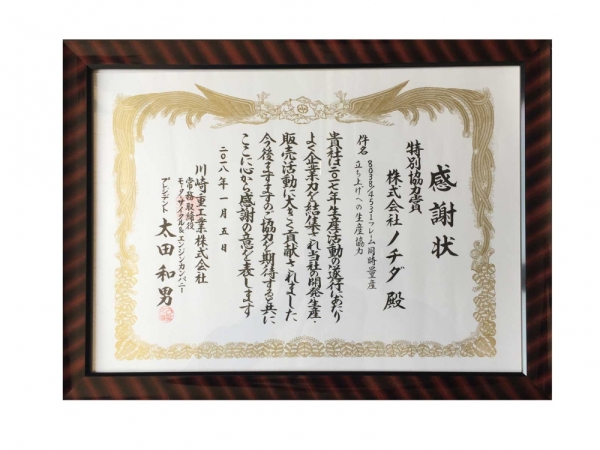 感謝状
特別協力賞
株式会社 ノチダ 殿
件名 8038/4532フレーム同時量産
立ち上げへの生産協力
貴社は二〇一七年生産活動の遂行にあたり
よく企業力を結集され当社の開発・生産・
販売活動に大きく貢献されました
今後ますますのご協力を期待すると共に
ここに心から感謝の意を表します
二〇一八年一月五日
川崎重工業株式会社
常務取締役
モーターサイクル&エンジンカンパニー
プレジデント 太田和男